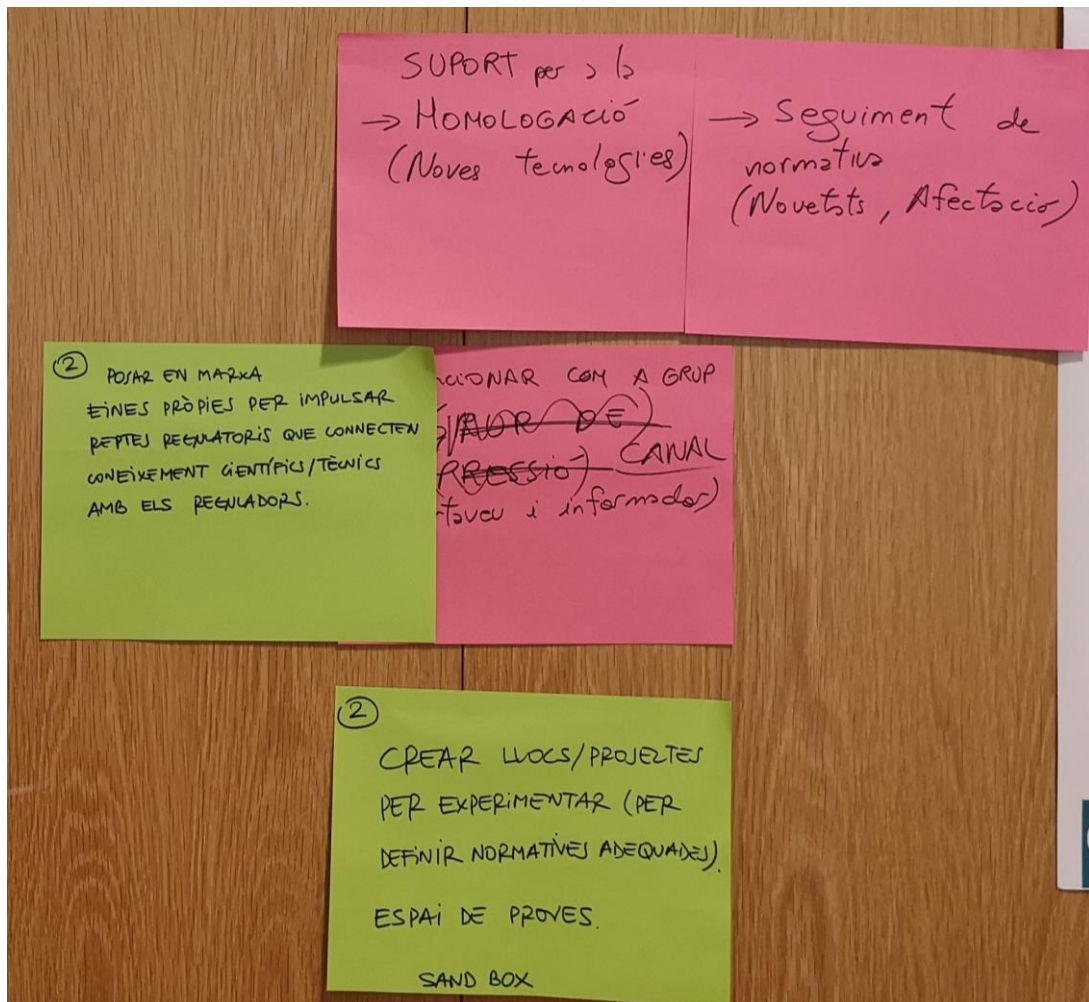 SUPORT per a la
→ HOMOLOGACIÓ
(Noves tecnologies)
→ Seguiment de
normativa
(Novetats, Afectacio)
②
POSAR EN MARXA
EINES PRÒPIES PER IMPULSAR
REPTES REGULATORIS QUE CONNECTEN
CONEIXEMENT CIENTÍFICS/TÈCNICS
AMB ELS REGULADORS.
CIONAR COM A GRUP
DE
CANAL
i informador)
②
CREAR LLOCS/PROJECTES
PER EXPERIMENTAR (PER
DEFINIR NORMATIVES ADEQUADES).
ESPAI DE PROVES.
SAND BOX